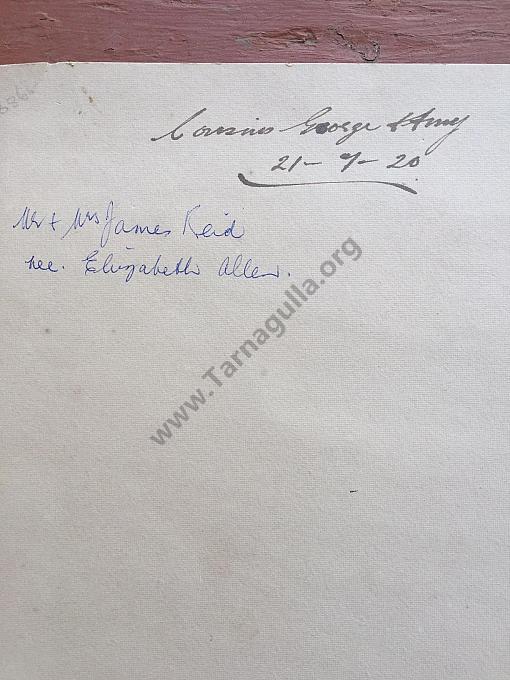 Cousins George & Amy
21 - 9 - 20
Mr + Mrs James Reid
nee. Elizabeth Allen.
www.Tarnagulla.org